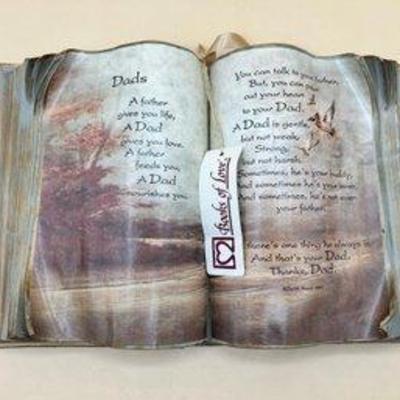 Dads
A father
gives you life,
A Dad
gives you love.
A father
feeds you,
A Dad
nourishes you.
You can talk to your father,
But, you can pour
out your heart
to your Dad.
A Dad is gentle,
but not weak,
Strong,
but not harsh.
Sometimes, he's your buddy,
And sometimes he's your
And sometimes, he's not even
your father.
there's one thing he always is
And that's your Dad.
Thanks, Dad.
Books of Love